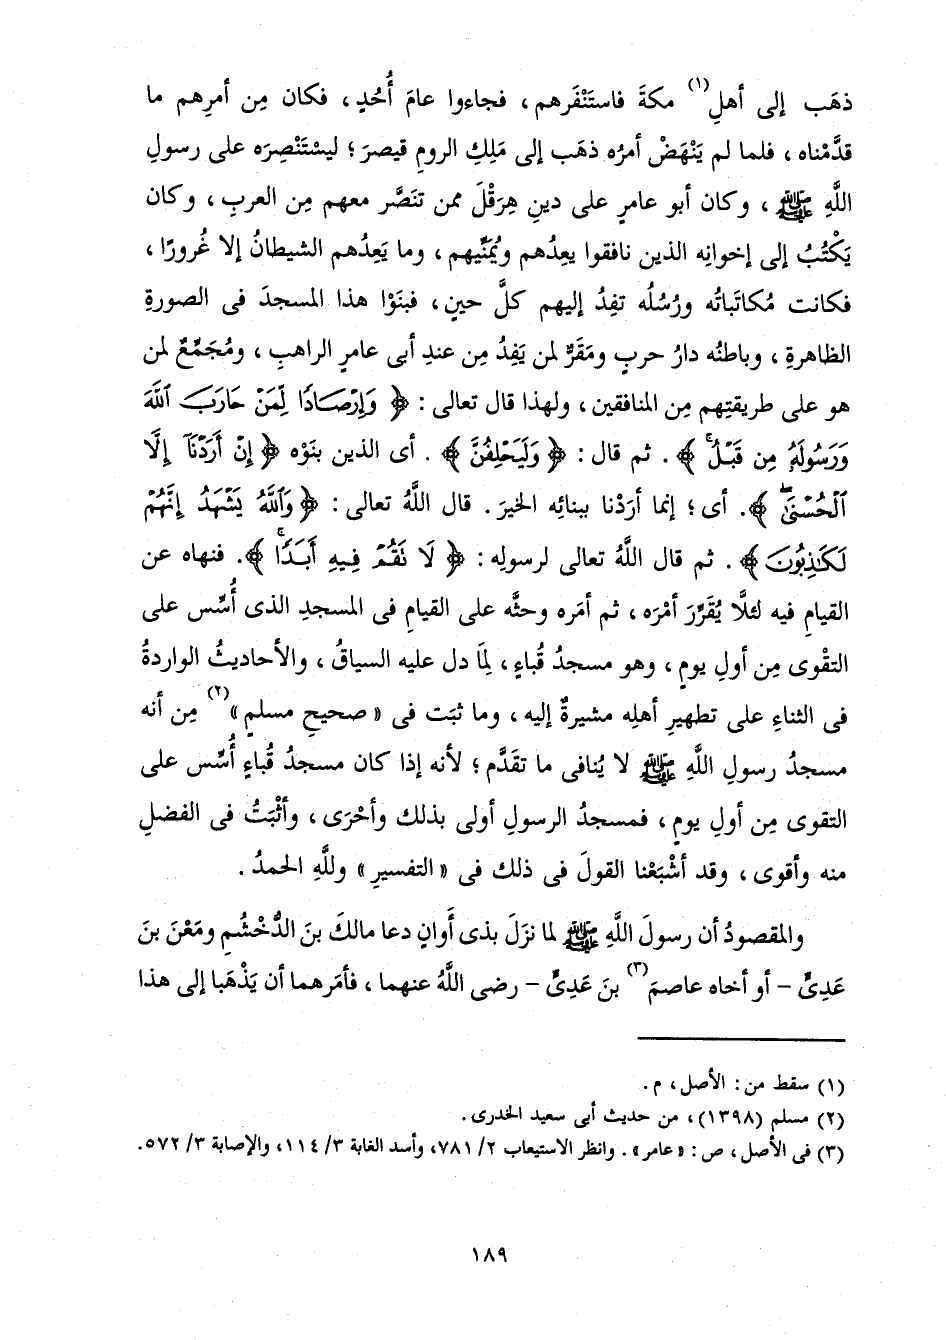 ذهَب إلى أهلِ(١) مكةَ فاستَنْفَرهم ، فجاءوا عامَ أُحُدٍ ، فكان مِن أمرِهم ما
قدَّمْناه ، فلما لم يَنْهَضْ أمرُه ذهَب إلى مَلِكِ الرومِ قيصرَ ؛ ليسْتَنْصِرَه على رسولِ
اللَّهِ ﷺ ، وكان أبو عامرٍ على دينِ هِرَقْلَ ممن تنَصَّر معهم مِن العربِ ، وكان
يَكْتُبُ إلى إخوانِه الذين نافقوا يعِدُهم ويُمَنِّيهم ، وما يَعِدُهم الشيطانُ إلا غُرورًا ،
فكانت مُكاتَباتُه ورُسُلُه تفِدُ إليهم كلَّ حينٍ ، فبنَوْا هذا المسجدَ فى الصورةِ
الظاهرةِ ، وباطنُه دارُ حربٍ ومَقَرٌّ لمن يَفِدُ مِن عندِ أبى عامرٍ الراهبِ ، ومُجَمِّعٌ لمن
هو على طريقتِهم مِن المنافقين ، ولهذا قال تعالى : ﴿ وَإِرْصَادًا لِّمَنْ حَارَبَ ٱللَّهَ
وَرَسُولَهُۥ مِن قَبْلُ ۚ ﴾ . ثم قال : ﴿ وَلَيَحْلِفُنَّ ﴾ . أى الذين بنَوْه ﴿ إِنْ أَرَدْنَآ إِلَّا
ٱلْحُسْنَىٰ ۖ ﴾ . أى ؛ إنما أرَدْنا ببنائِه الخيرَ . قال اللَّهُ تعالى : ﴿ وَٱللَّهُ يَشْهَدُ إِنَّهُمْ
لَكَٰذِبُونَ ﴾ . ثم قال اللَّهُ تعالى لرسولِه : ﴿ لَا تَقُمْ فِيهِ أَبَدًا ۚ ﴾ . فنهاه عن
القيامِ فيه لئلَّا يُقَرِّرَ أمْرَه ، ثم أمَره وحثَّه على القيامِ فى المسجدِ الذى أُسِّس على
التقْوى مِن أولِ يومٍ ، وهو مسجدُ قُباءٍ ، لِمَا دل عليه السياقُ ، والأحاديثُ الواردةُ
فى الثناءِ على تطهيرِ أهلِه مشيرةٌ إليه ، وما ثبَت فى « صحيحِ مسلمٍ »(٢) مِن أنه
مسجدُ رسولِ اللَّهِ ﷺ لا يُنافى ما تقَدَّم ؛ لأنه إذا كان مسجدُ قُباءٍ أُسِّس على
التقوى مِن أولِ يومٍ ، فمسجدُ الرسولِ أولى بذلك وأحْرَى ، وأثْبَتُ فى الفضلِ
منه وأقوى ، وقد أشْبَعْنا القولَ فى ذلك فى « التفسيرِ » وللَّهِ الحمدُ .
والمقصودُ أن رسولَ اللَّهِ ﷺ لما نزَلَ بذى أَوانٍ دعا مالكَ بنَ الدُّخْشُمِ ومَعْنَ بنَ
عَدِىٍّ – أو أخاه عاصمَ(٣) بنَ عَدِىٍّ – رضى اللَّهُ عنهما ، فأمَرهما أن يَذْهَبا إلى هذا
(١) سقط من : الأصل ، م .
(٢) مسلم (١٣٩٨) ، من حديث أبى سعيد الخدرى .
(٣) فى الأصل ، ص : « عامر » . وانظر الاستيعاب ٢/ ٧٨١، وأسد الغابة ٣/ ١١٤، والإصابة ٣/ ٥٧٢.
١٨٩